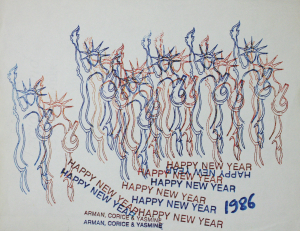 HAPPY NEW YEAR
HAPPY NEW YEAR
HAPPY NEW YEAR
HAPPY NEW YEAR
HAPPY NEW YEAR
HAPPY NEW YEAR
HAPPY NEW YEAR 1986
HAPPY NEW YEAR
ARMAN, CORICE & YASMINE
ARMAN, CORICE & YASMINE